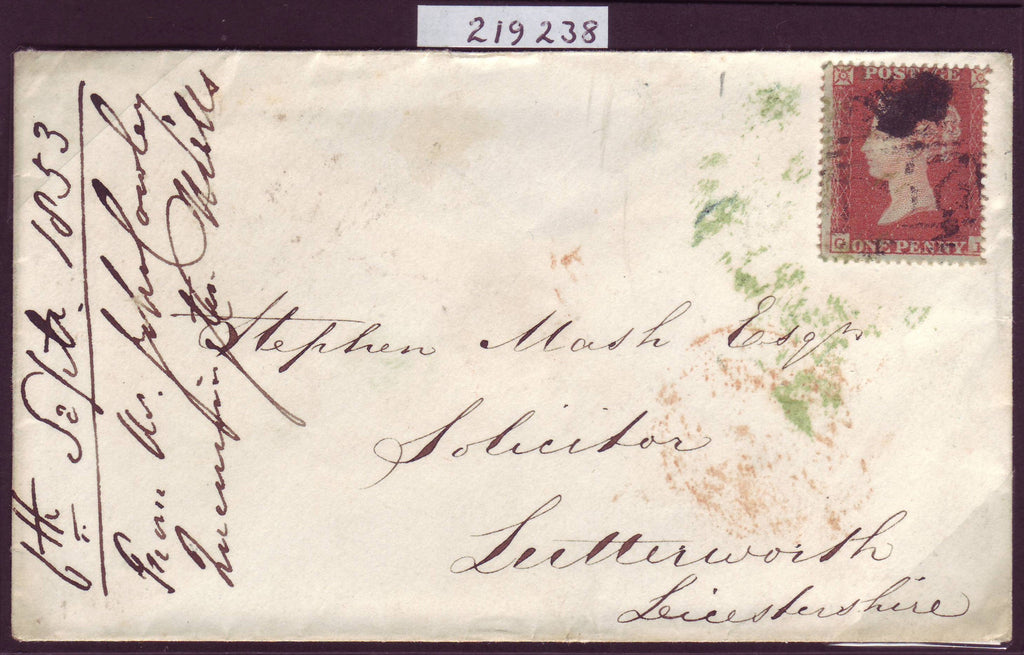 219 238
POSTAGE
G ONE PENNY I
Stephen Mash Esqr
Solicitor
Lutterworth
Leicestershire
6th Septr. 1853
From Mr. John Cowley
Mills